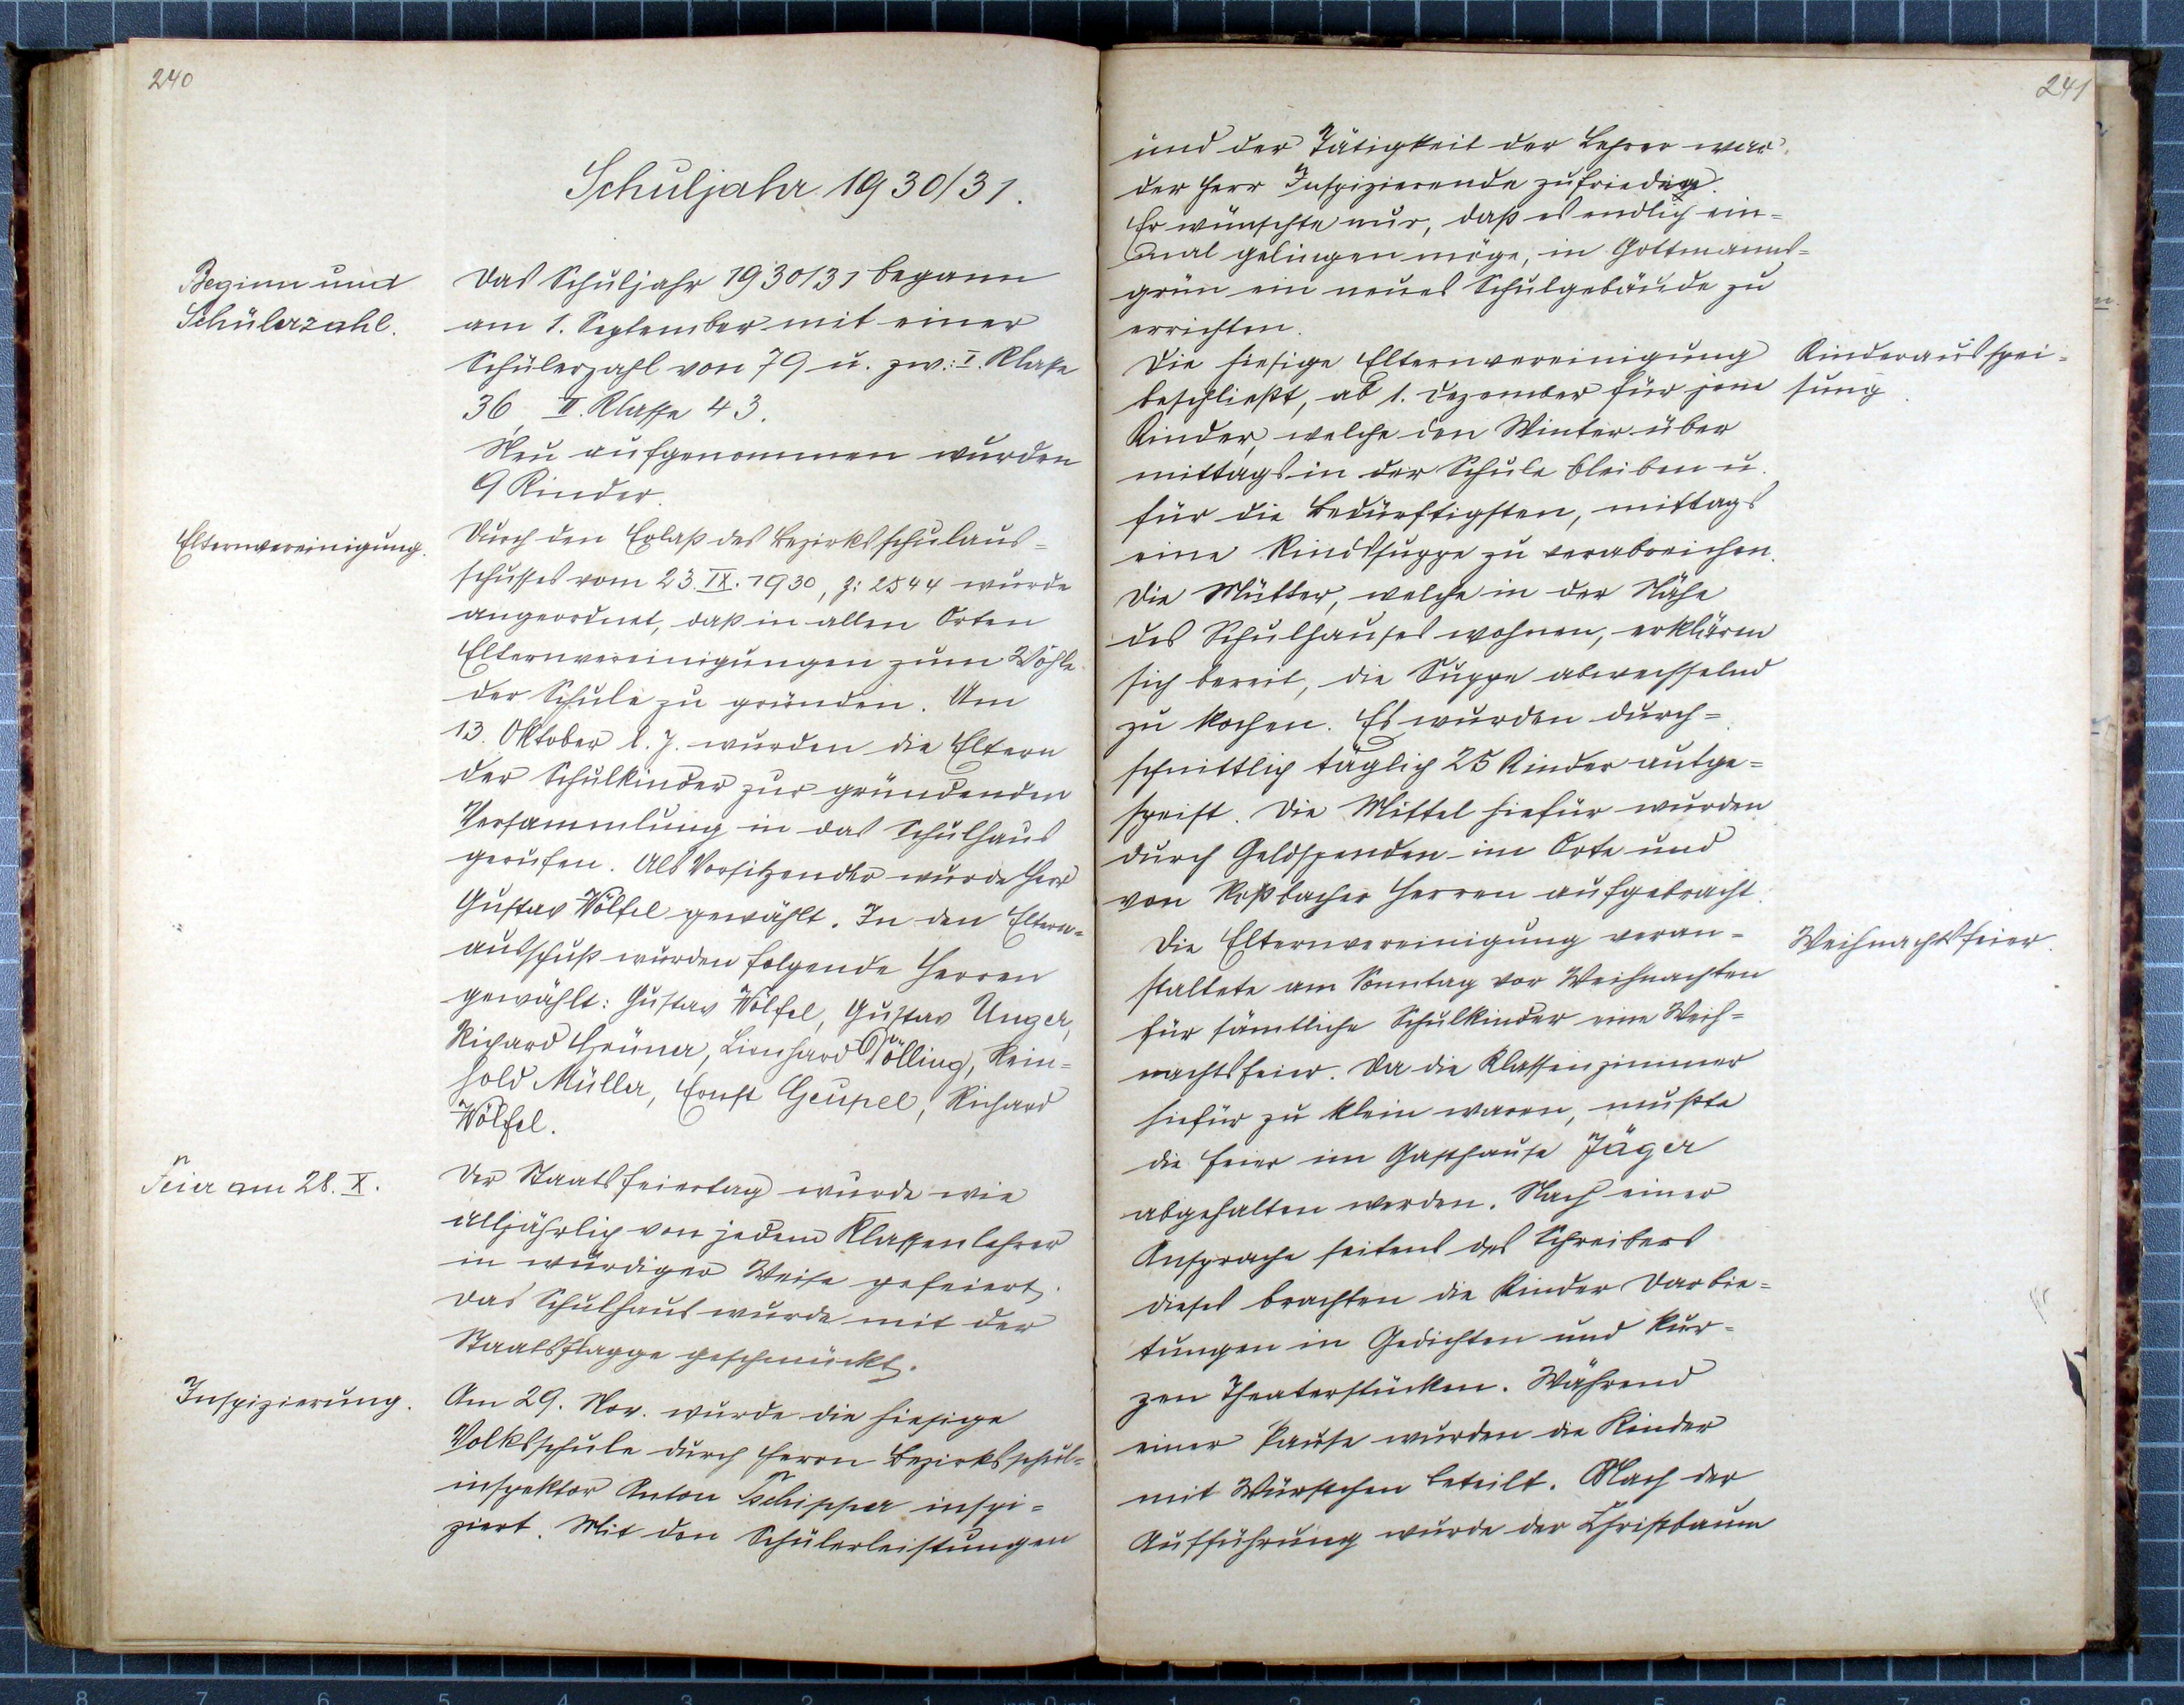 240
Schuljahr 1930/31.
Beginn und
Schülerzahl.
Das Schuljahr 1930/31 begann
am 1. September mit einer
Schülerzahl von 79 u. zw.: I. Klasse
36, II. Klasse 43.
Neu aufgenommen wurden
9 Kinder.
Elternvereinigung.
Durch den Erlaß des Bezirksschulaus-
schusses vom 23. IX. 1930, Z: 2544 wurde
angeordnet, daß in allen Orten
Elternvereinigungen zum Wohle
der Schule zu gründen. Am
13. Oktober l. J. wurden die Eltern
der Schulkinder zur gründenden
Versammlung in das Schulhaus
gerufen. Als Vorsitzender wurde Herr
Gustav Wölfel gewählt. In den Eltern-
ausschuß wurden folgende Herren
gewählt: Gustav Wölfel, Gustav Unger,
Richard Grüner, Lienhard Pölling, Rein-
hold Müller, Ernst Geupel, Richard
Wölfel.
Feier am 28. X.
Der Staatsfeiertag wurde wie
alljährlich von jedem Klassenlehrer
in würdiger Weise gefeiert.
Das Schulhaus wurde mit der
Staatsflagge geschmückt.
Inspizierung.
Am 29. Nov. wurde die hiesige
Volksschule durch Herrn Bezirksschul-
inspektor Anton Tschipper inspi-
ziert. Mit den Schülerleistungen
241
und der Tätigkeit der Lehrer war
der Herr Inspizierende zufrieden.
Er wünschte nur, daß es endlich ein-
mal gelingen möge, in Gottmanns-
grün ein neues Schulgebäude zu
errichten.
Die hiesige Elternvereinigung
beschließt, ab 1. Dezember für jene
Kinder, welche den Winter über
mittags in der Schule bleiben u.
für die Bedürftigsten, mittags
eine Rindsuppe zu verabreichen.
Die Mütter, welche in der Nähe
des Schulhauses wohnen, erklären
sich bereit, die Suppe abwechselnd
zu kochen. Es wurden durch-
schnittlich täglich 25 Kinder ausge-
speist. Die Mittel hiefür wurden
durch Geldspenden im Orte und
von Roßbacher Herren aufgebracht.
Kinderausspei-
sung.
Die Elternvereinigung veran-
staltete am Sonntag vor Weihnachten
für sämtliche Schulkinder eine Weih-
nachtsfeier. Da die Klassenzimmer
hiefür zu klein waren, mußte
die Feier im Gasthause Jäger
abgehalten werden. Nach einer
Ansprache seitens des Schreibers
dieses brachten die Kinder Darbie-
tungen in Gedichten und kur-
zen Theaterstücken. Während
einer Pause wurden die Kinder
mit Würstchen beteilt. Nach der
Aufführung wurde der Christbaum
Weihnachtsfeier.
8 7 6 5 4 3 2 1 inch 0 inch 1 2 3 4 5 6 7 8 9